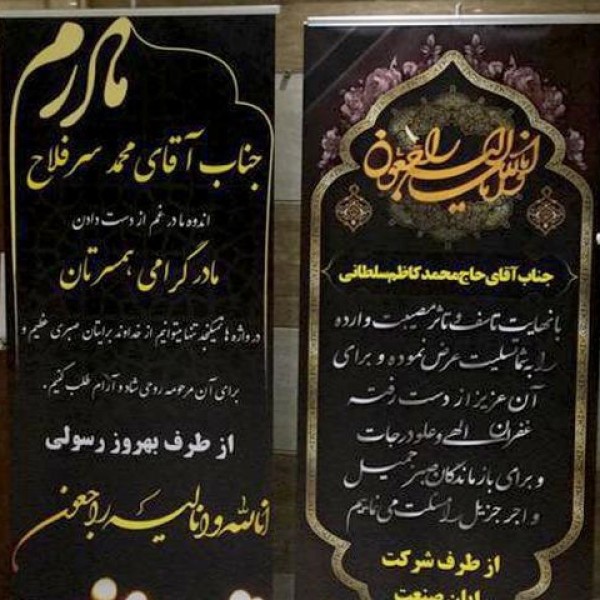 مادرم
جناب آقای محمد سرفلاح
اندوه ما در غم از دست دادن
مادر گرامی همسرتان
در واژه ها نمیگنجد تنها میتوانیم از خداوند برایتان صبری عظیم و
برای آن مرحومه روحی شاد و آرام طلب کنیم.
از طرف بهروز رسولی
انا لله و انا الیه راجعون
انا لله و انا الیه راجعون
جناب آقای حاج محمد کاظم سلطانی
با نهایت تاسف و تاثر مصیبت وارده
را به شما تسلیت عرض نموده و برای
آن عزیز از دست رفته
غفران الهی و علو درجات
و برای بازماندگان صبر جمیل
و اجر جزیل را مسئلت می نماییم
از طرف شرکت
صنعت